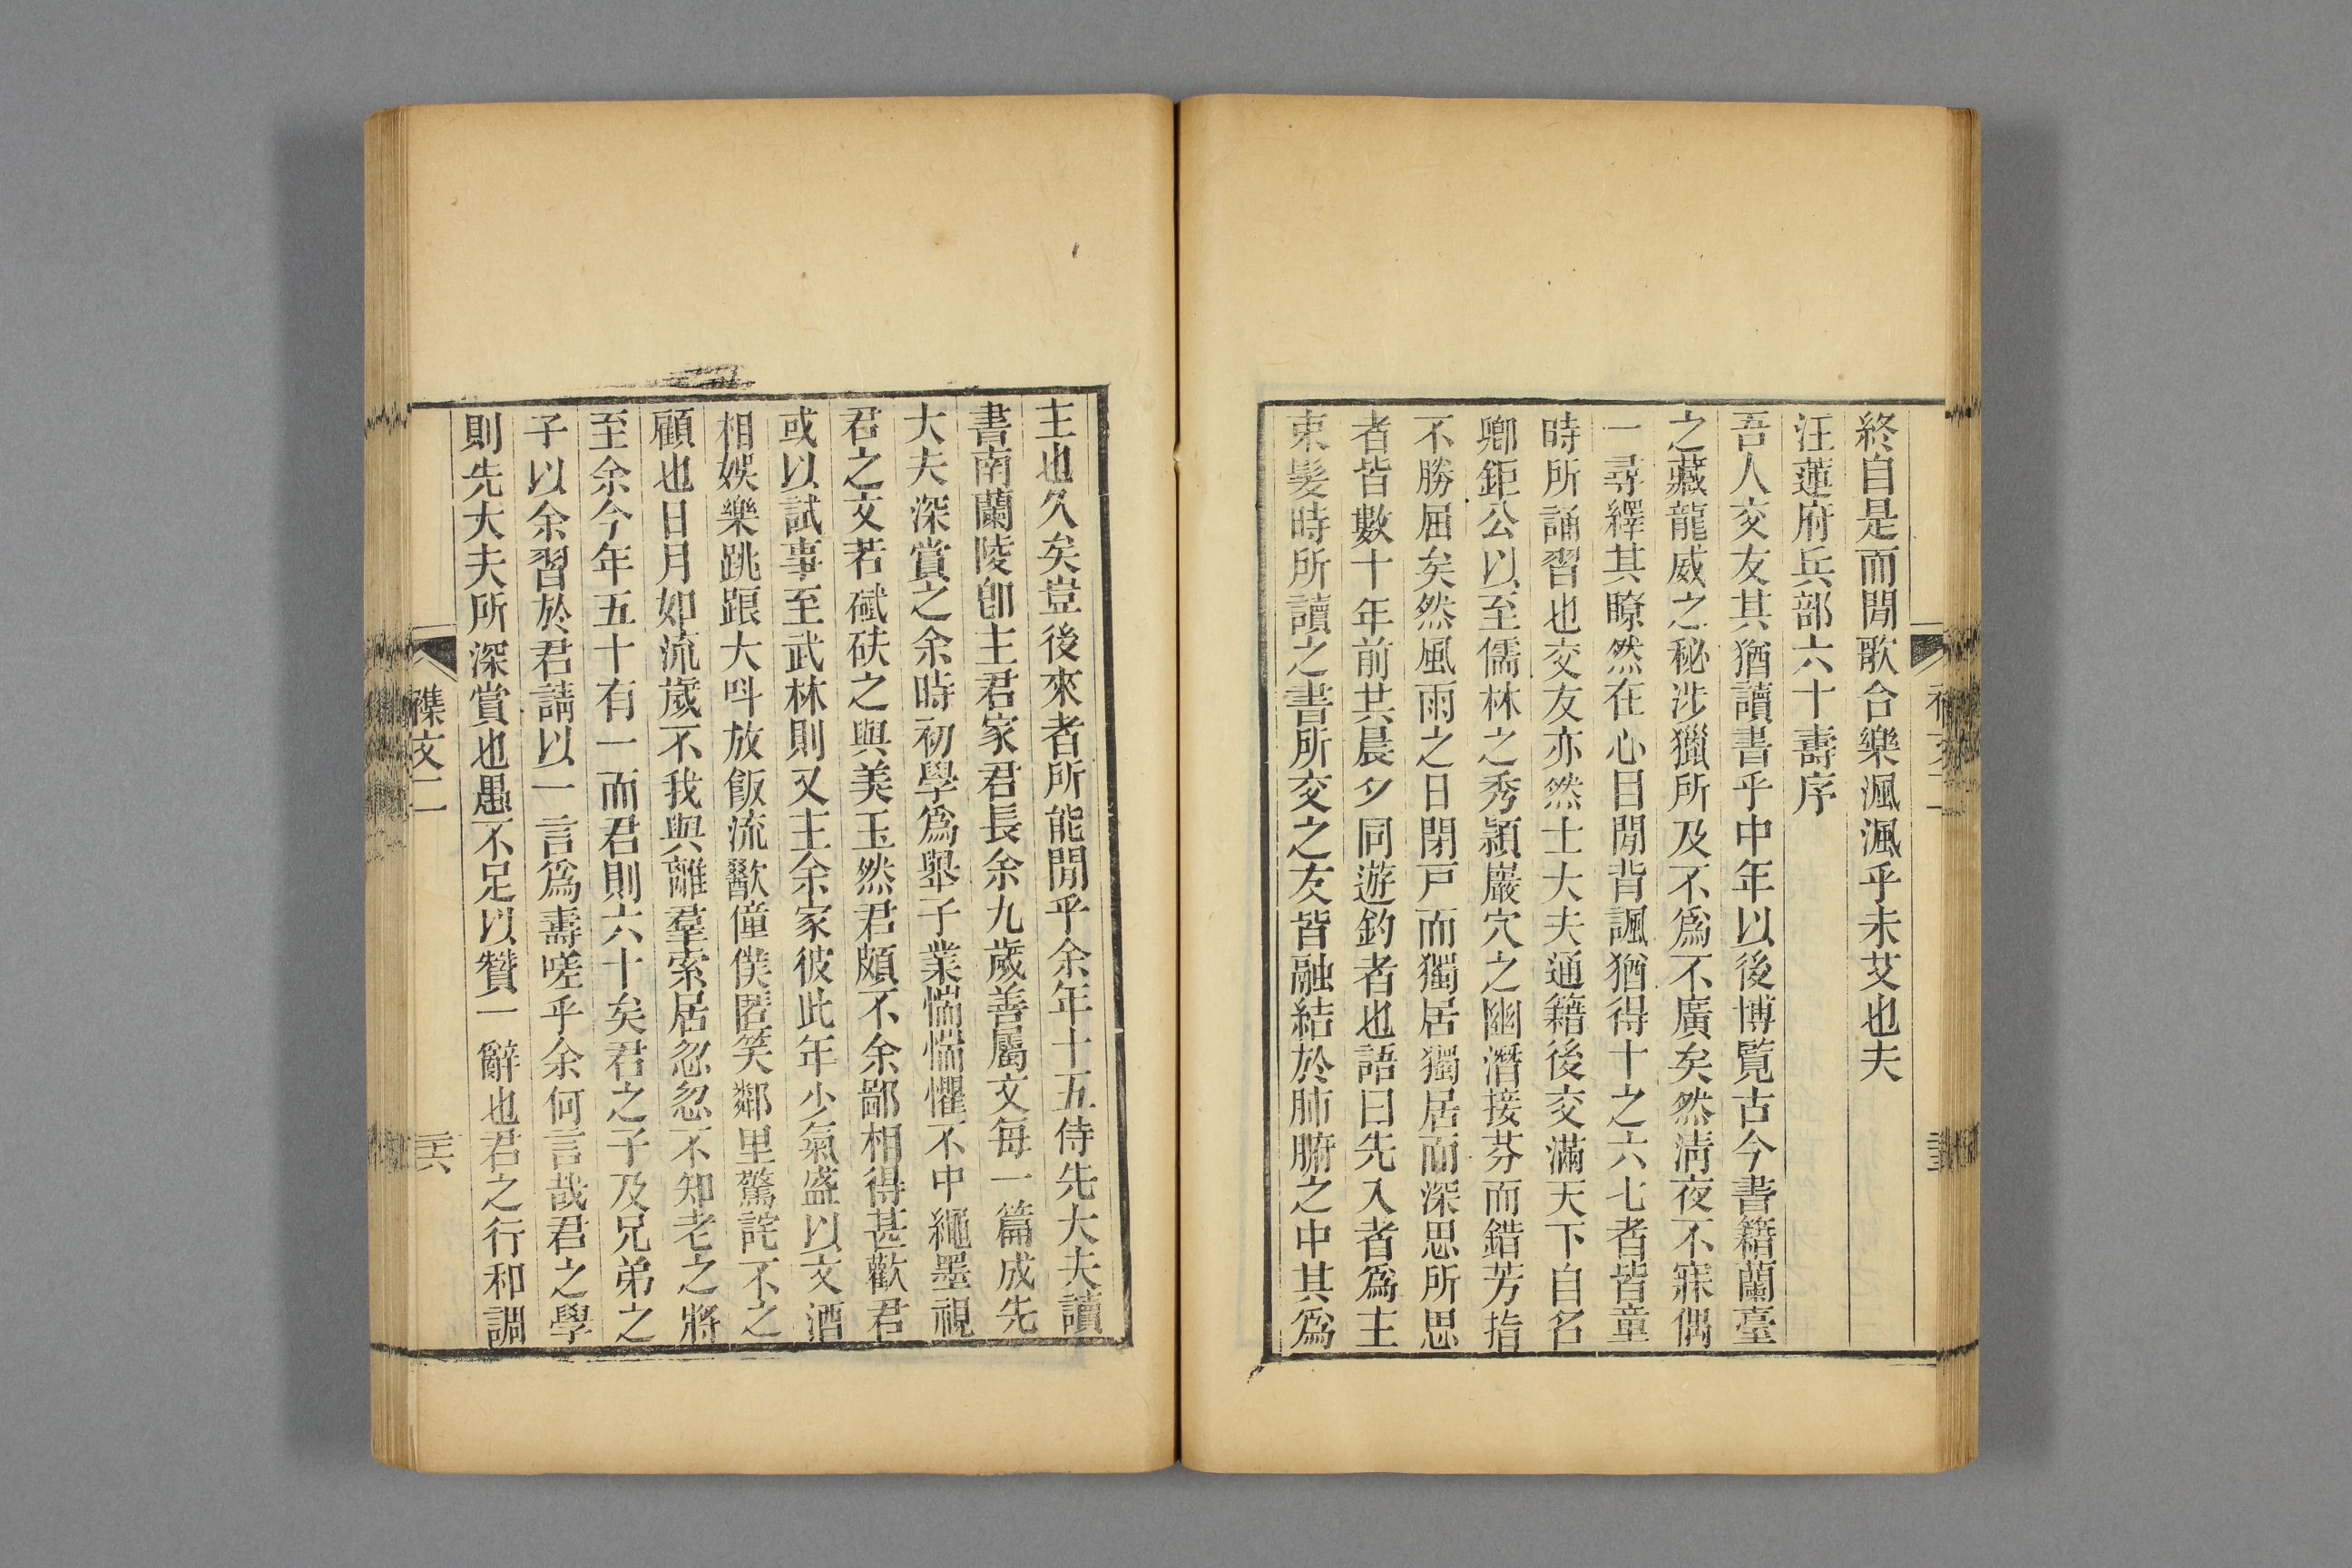 終自是而閒歌合樂渢渢乎未艾也夫
汪蓮府兵部六十壽序
吾人交友其猶讀書乎中年以後博覧古今書籍蘭臺
之藏龍威之秘涉獵所及不爲不廣矣然淸夜不寐偶
一尋繹其瞭然在心目閒背諷猶得十之六七者皆童
時所誦習也交友亦然士大夫通籍後交滿天下自名
卿鉅公以至儒林之秀潁巖穴之幽潛接芬而錯芳指
不勝屈矣然風雨之日閉戸而獨居獨居而深思所思
者皆數十年前其晨夕同遊釣者也語曰先入者爲主
束髮時所讀之書所交之友皆融結於肺腑之中其爲
主也久矣豈後來者所能閒乎余年十五侍先大夫讀
書南蘭陵卽主君家君長余九歲善屬文每一篇成先
大夫深賞之余時初學爲舉子業惴惴懼不中繩墨視
君之文若碔砆之與美玉然君頗不余鄙相得甚歡君
或以試事至武林則又主余家彼此年少氣盛以文酒
相娛樂跳踉大呌放飯流歠僮僕匿笑鄰里驚詫不之
顧也日月如流歲不我與離羣索居忽忽不知老之將
至余今年五十有一而君則六十矣君之子及兄弟之
子以余習於君請以一言爲壽嗟乎余何言哉君之學
則先大夫所深賞也愚不足以贊一辭也君之行和調
襍文二
三六